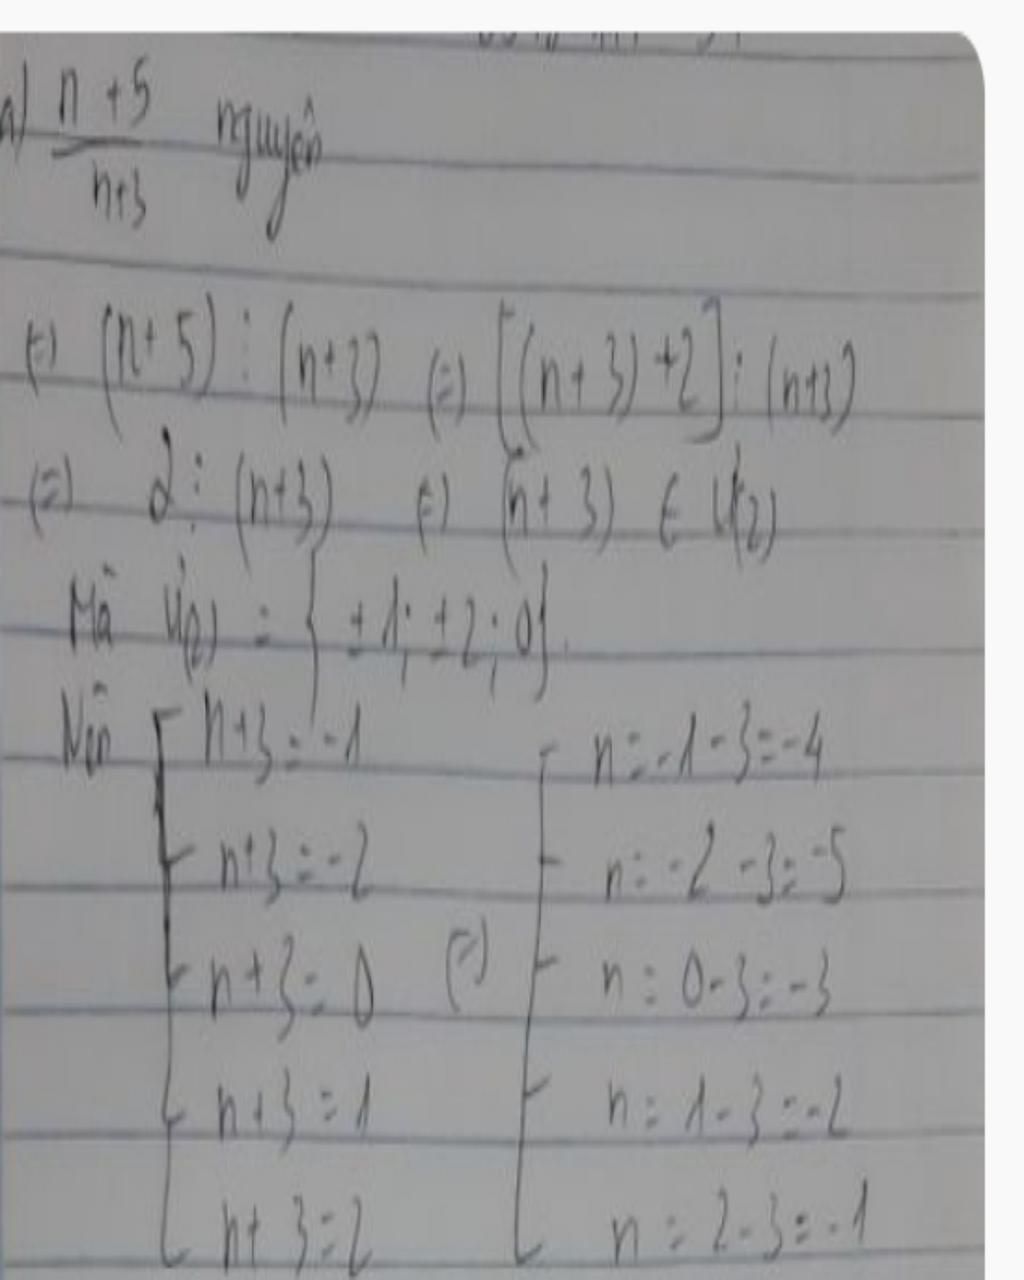 a) n+5/n+3 nguyên
(=) (n+5) ⋮ (n+3) (=) [(n+3)+2] ⋮ (n+3)
(=) 2 ⋮ (n+3) (=) (n+3) ∈ Ư(2)
Mà Ư(2) = {±1; ±2; 0}.
Nên n+3=-1 n=-1-3=-4
n+3=-2 n=-2-3=-5
n+3=0 (=) n=0-3=-3
n+3=1 n=1-3=-2
n+3=2 n=2-3=-1